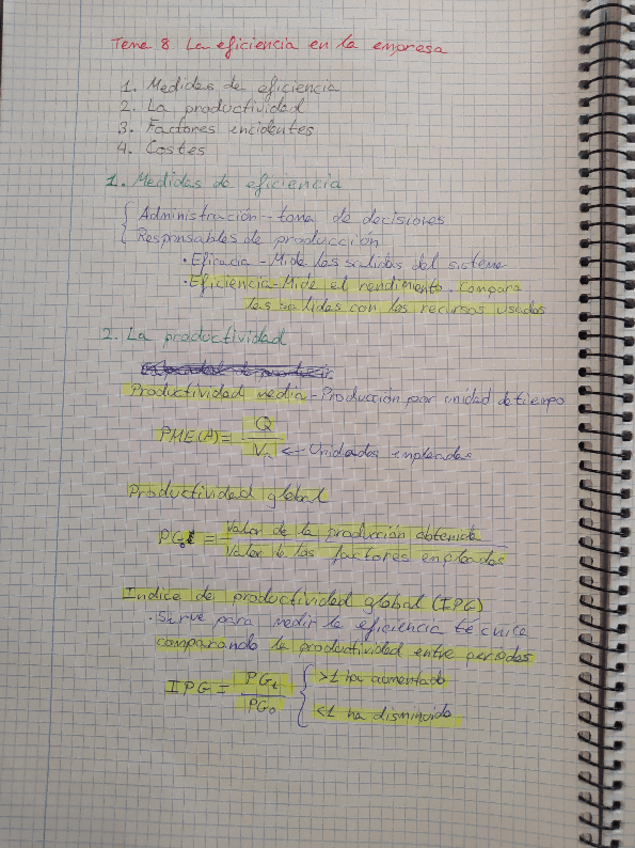 Tema 8. La eficiencia en la empresa
1. Medidas de eficiencia
2. La productividad
3. Factores incidentes
4. Costes
1. Medidas de eficiencia
Administración - toma de decisiones
Responsables de producción
• Eficacia - Mide las salidas del sistema
• Eficiencia - Mide el rendimiento. Compara
las salidas con los recursos usados
2. La productividad
Productividad media - Producción por unidad de tiempo
PME(A) = Q / VA ← Unidades empleadas
Productividad global
PG = Valor de la producción obtenida / Valor de los factores empleados
Indice de productividad global (IPG)
• Sirve para medir la eficiencia técnica
comparando la productividad entre periodos
IPG = PGt / PG0 { >1 ha aumentado
<1 ha disminuido